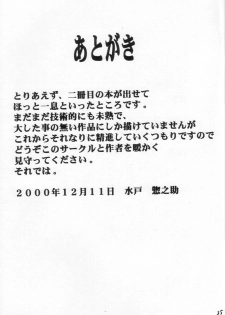 あとがき
とりあえず、二冊目の本が出せて
ほっと一息といったところです。
まだまだ技術的にも未熟で、
大した事の無い作品にしか描けていませんが
これからそれなりに精進していくつもりですので
どうぞこのサークルと作者を暖かく
見守ってください。
それでは。
2000年12月11日　水戸　惣之助
25